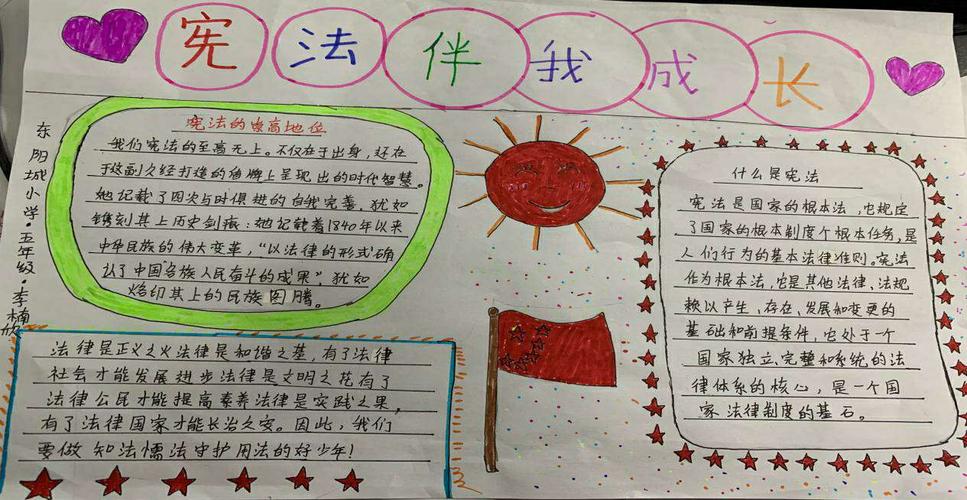 宪法伴我成长
东阳城小学·五年级·李楠欣
宪法的崇高地位
我们宪法的至高无上。不仅在于出身，还在
于这副久经打造的盾牌上呈现出的时代智慧。
她记载了四次与时俱进的自我完善，犹如
镌刻其上历史剑痕：她记载着1840年以来
中华民族的伟大变革，“以法律的形式确
认了中国各族人民奋斗的成果”，犹如
烙印其上的民族图腾。
法律是正义之火法律是和谐之基，有了法律
社会才能发展进步法律是文明之花有了
法律公民才能提高素养法律是实践之果，
有了法律国家才能长治久安。因此，我们
要做知法懦法守护用法的好少年！
什么是宪法
宪法是国家的根本法，它规定
了国家的根本制度个根本任务，是
人们行为的基本法律准则。宪法
作为根本法，它是其他法律、法规
赖以产生、存在、发展和变更的
基础和前提条件，它处于一个
国家独立、完整和系统的法
律体系的核心，是一个国
家法律制度的基石。